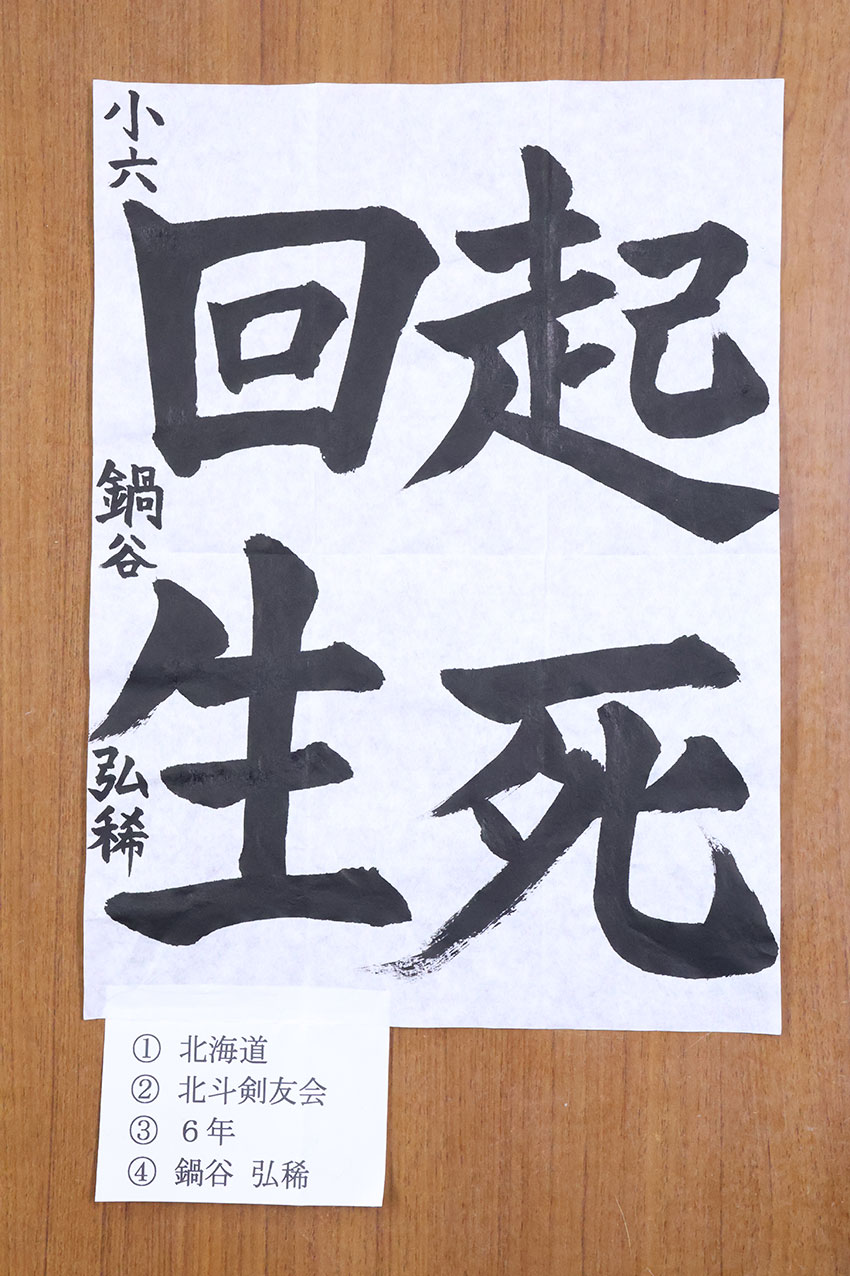 起死
回生
小六
鍋谷
弘稀
① 北海道
② 北斗剣友会
③ ６年
④ 鍋谷 弘稀